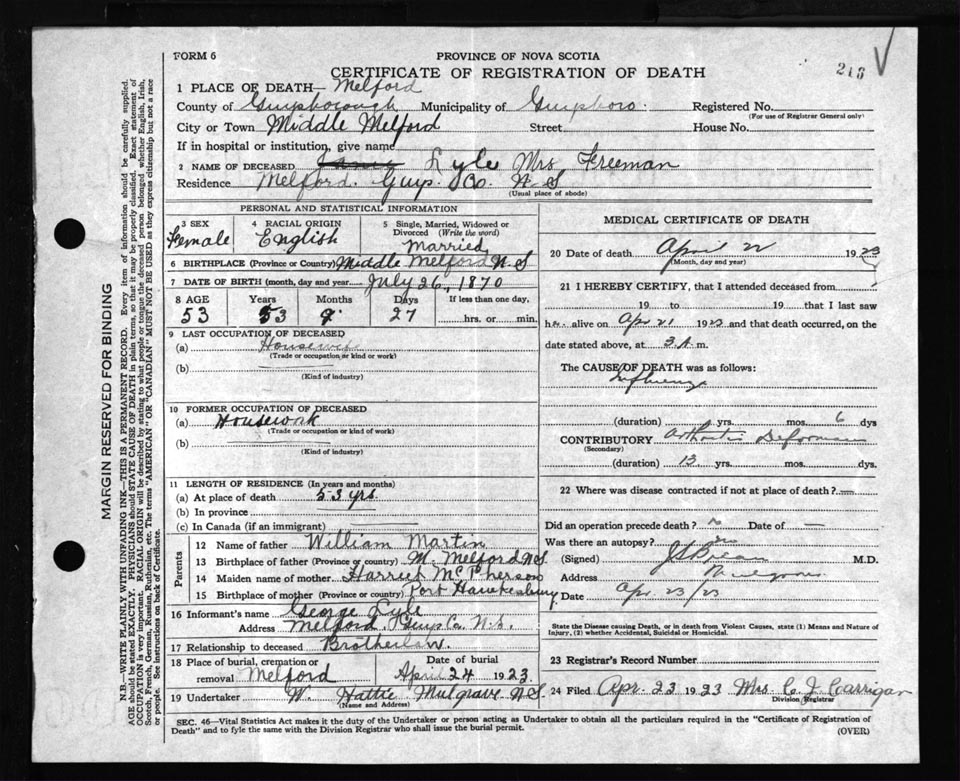 FORM 6
PROVINCE OF NOVA SCOTIA
CERTIFICATE OF REGISTRATION OF DEATH
213
1 PLACE OF DEATH— Melford
County of Guysborough Municipality of Guysboro. Registered No.
(For use of Registrar General only)
City or Town Middle Melford Street House No.
If in hospital or institution, give name
2 NAME OF DECEASED Lyle Mrs Freeman
Residence Melford. Guys. Co. N S
(Usual place of abode)
PERSONAL AND STATISTICAL INFORMATION
3 SEX
Female
4 RACIAL ORIGIN
English
5 Single, Married, Widowed or Divorced (Write the word)
Married
6 BIRTHPLACE (Province or Country) Middle Melford N.S
7 DATE OF BIRTH (month, day and year) July 26, 1870
8 AGE Years Months Days If less than one day,
53 53 9. 27 hrs. or min.
9 LAST OCCUPATION OF DECEASED
(a) Housewife
(Trade or occupation or kind or work)
(b)
(Kind of industry)
10 FORMER OCCUPATION OF DECEASED
(a) Housework
(Trade or occupation or kind of work)
(b)
(Kind of industry)
11 LENGTH OF RESIDENCE (In years and months)
(a) At place of death 53 yrs.
(b) In province
(c) In Canada (if an immigrant)
Parents
12 Name of father William Martin
13 Birthplace of father (Province or country) M. Melford N S
14 Maiden name of mother Harriet McPherson
15 Birthplace of mother (Province or country) Port Hawkesbury
16 Informant's name George Lyle
Address Melford Guys Co. N.S.
17 Relationship to deceased Brotherlaw.
18 Place of burial, cremation or removal Melford
Date of burial April 24 1923.
19 Undertaker W. Hattie Mulgrave N.S.
(Name and Address)
MEDICAL CERTIFICATE OF DEATH
20 Date of death April 22 1923
(Month, day and year)
21 I HEREBY CERTIFY, that I attended deceased from
19 to 19 that I last saw
her alive on Apr 21 1923 and that death occurred, on the
date stated above, at 3 A. m.
The CAUSE OF DEATH was as follows:
Influenza
(duration) yrs. mos. 6 dys
CONTRIBUTORY Arthritis Deformans
(Secondary)
(duration) 13 yrs. mos. dys.
22 Where was disease contracted if not at place of death? —
Did an operation precede death? no Date of —
Was there an autopsy? no
(Signed) M.D.
Address Mulgrave
Date Apr. 23/23
State the Disease causing Death, or in death from Violent Causes, state (1) Means and Nature of Injury, (2) whether Accidental, Suicidal or Homicidal.
23 Registrar's Record Number
24 Filed Apr. 23 1923 Mrs C. J. Carrigan
Division Registrar
SEC. 46—Vital Statistics Act makes it the duty of the Undertaker or person acting as Undertaker to obtain all the particulars required in the "Certificate of Registration of
Death" and to fyle the same with the Division Registrar who shall issue the burial permit.
(OVER)
MARGIN RESERVED FOR BINDING
N.B.—WRITE PLAINLY WITH UNFADING INK—THIS IS A PERMANENT RECORD. Every item of information should be carefully supplied.
AGE should be stated EXACTLY. PHYSICIANS should STATE CAUSE OF DEATH in plain terms, so that it may be properly classified. Exact statement of
OCCUPATION is very important. RACIAL ORIGIN will be described by stating to what people or tongue the deceased person belonged whether English, Irish,
Scotch, French, German, Russian, Ruthenian, etc. The terms "AMERICAN" OR "CANADIAN" MUST NOT BE USED as they express citizenship but not a race
or people. See instructions on back of Certificate.